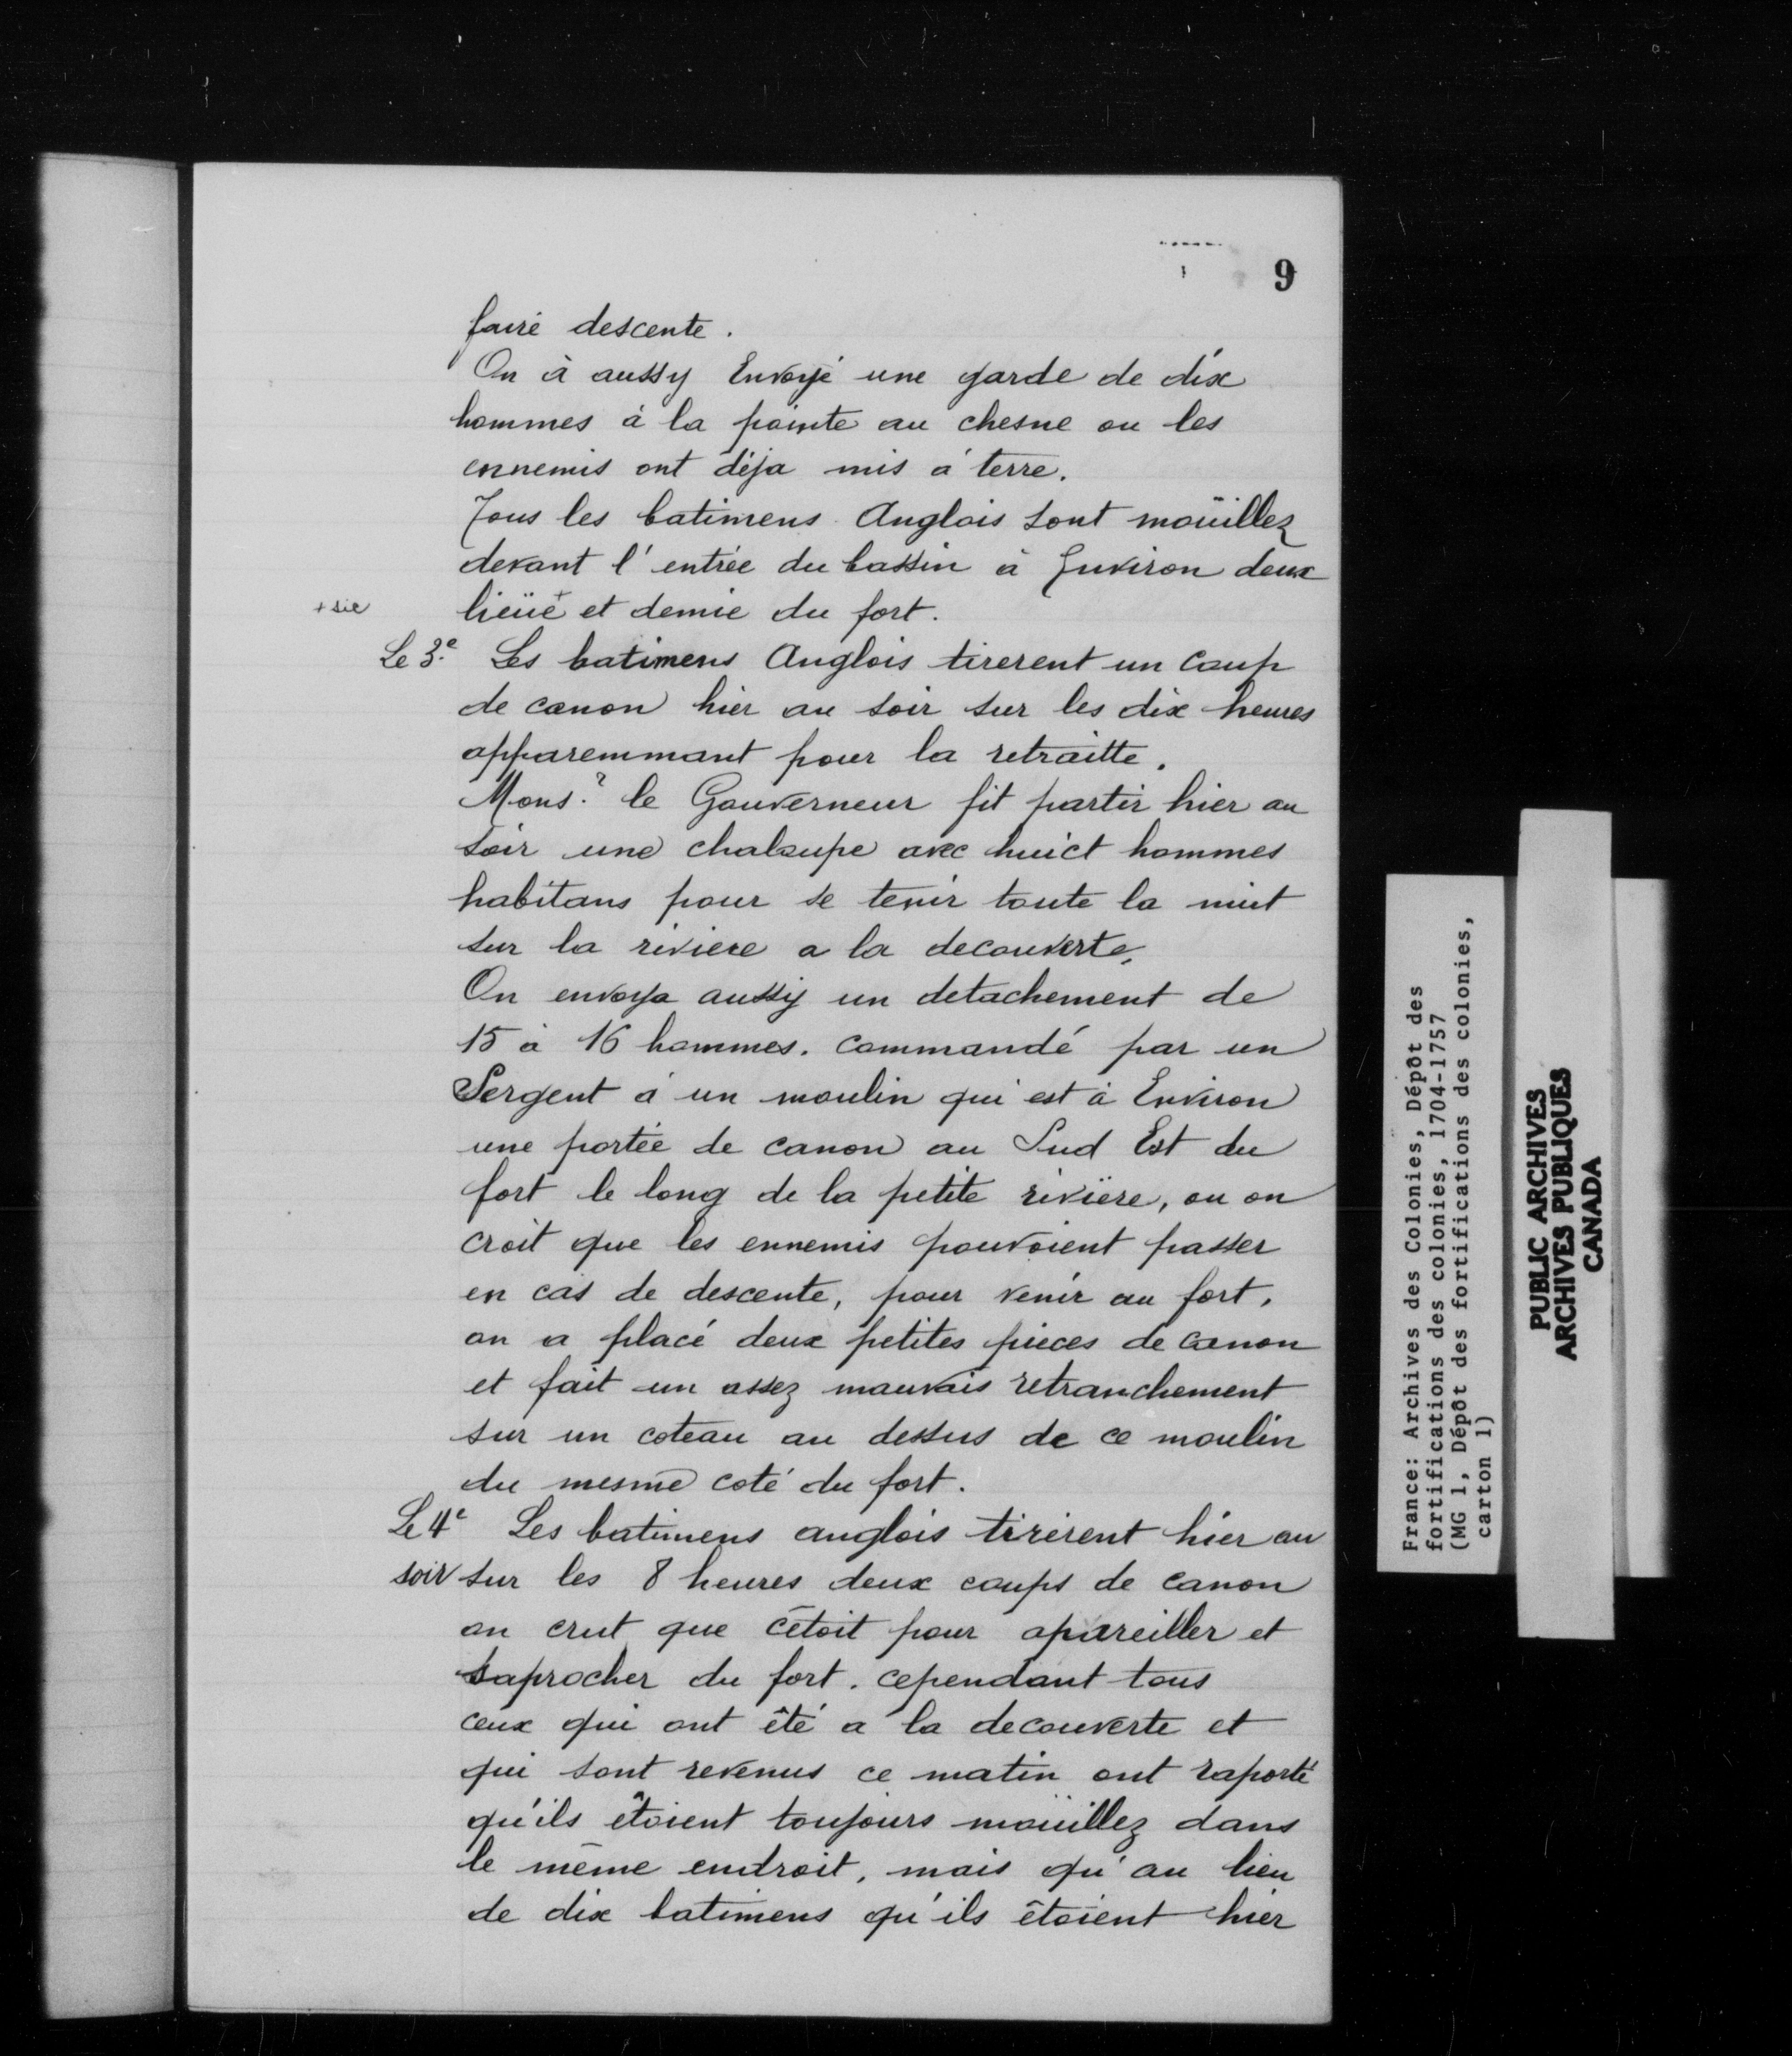 9
faire descente.
On à aussy Envoyé une garde de dix
hommes à la pointe au chesne ou les
ennemis ont déja mis à terre.
Tous les batimens Anglois sont moüillez
devant l'entrée du bassin à Environ deux
+ sic
lieüe + et demie du fort.
Le 3e. Les batimens Anglois tirerent un coup
de canon hier au soir sur les dix heures
apparemmant pour la retraitte.
Mons.r le Gouverneur fit partir hier au
soir une chaloupe avec huict hommes
habitans pour se tenir toute la nuit
sur la riviere a la decouverte.
On envoya aussy un detachement de
15 à 16 hommes. commandé par un
Sergent à un moulin qui est à Environ
une portée de canon au Sud Est du
fort le long de la petite riviëre, ou on
croit que les ennemis pouvoient passer
en cas de descente, pour venir au fort.
on a placé deux petites pieces de canon
et fait un assez mauvais retranchement
sur un coteau au dessus de ce moulin
du mesme coté du fort.
Le 4e Les batimens anglois tirèrent hier au
soir sur les 8 heures deux coups de canon
on crut que cétoit pour apareiller et
saprocher du fort. cependant tous
ceux qui ont êté a la decouverte et
qui sont revenus ce matin ont raporté
qu'ils êtoient toujours moüillez dans
le même endroit, mais qu'au lieu
de dix batimens qu'ils êtoient hier
France: Archives des Colonies, Dépôt des
fortifications des colonies, 1704-1757
(MG 1, Dépôt des fortifications des colonies,
carton 1)
PUBLIC ARCHIVES
ARCHIVES PUBLIQUES
CANADA